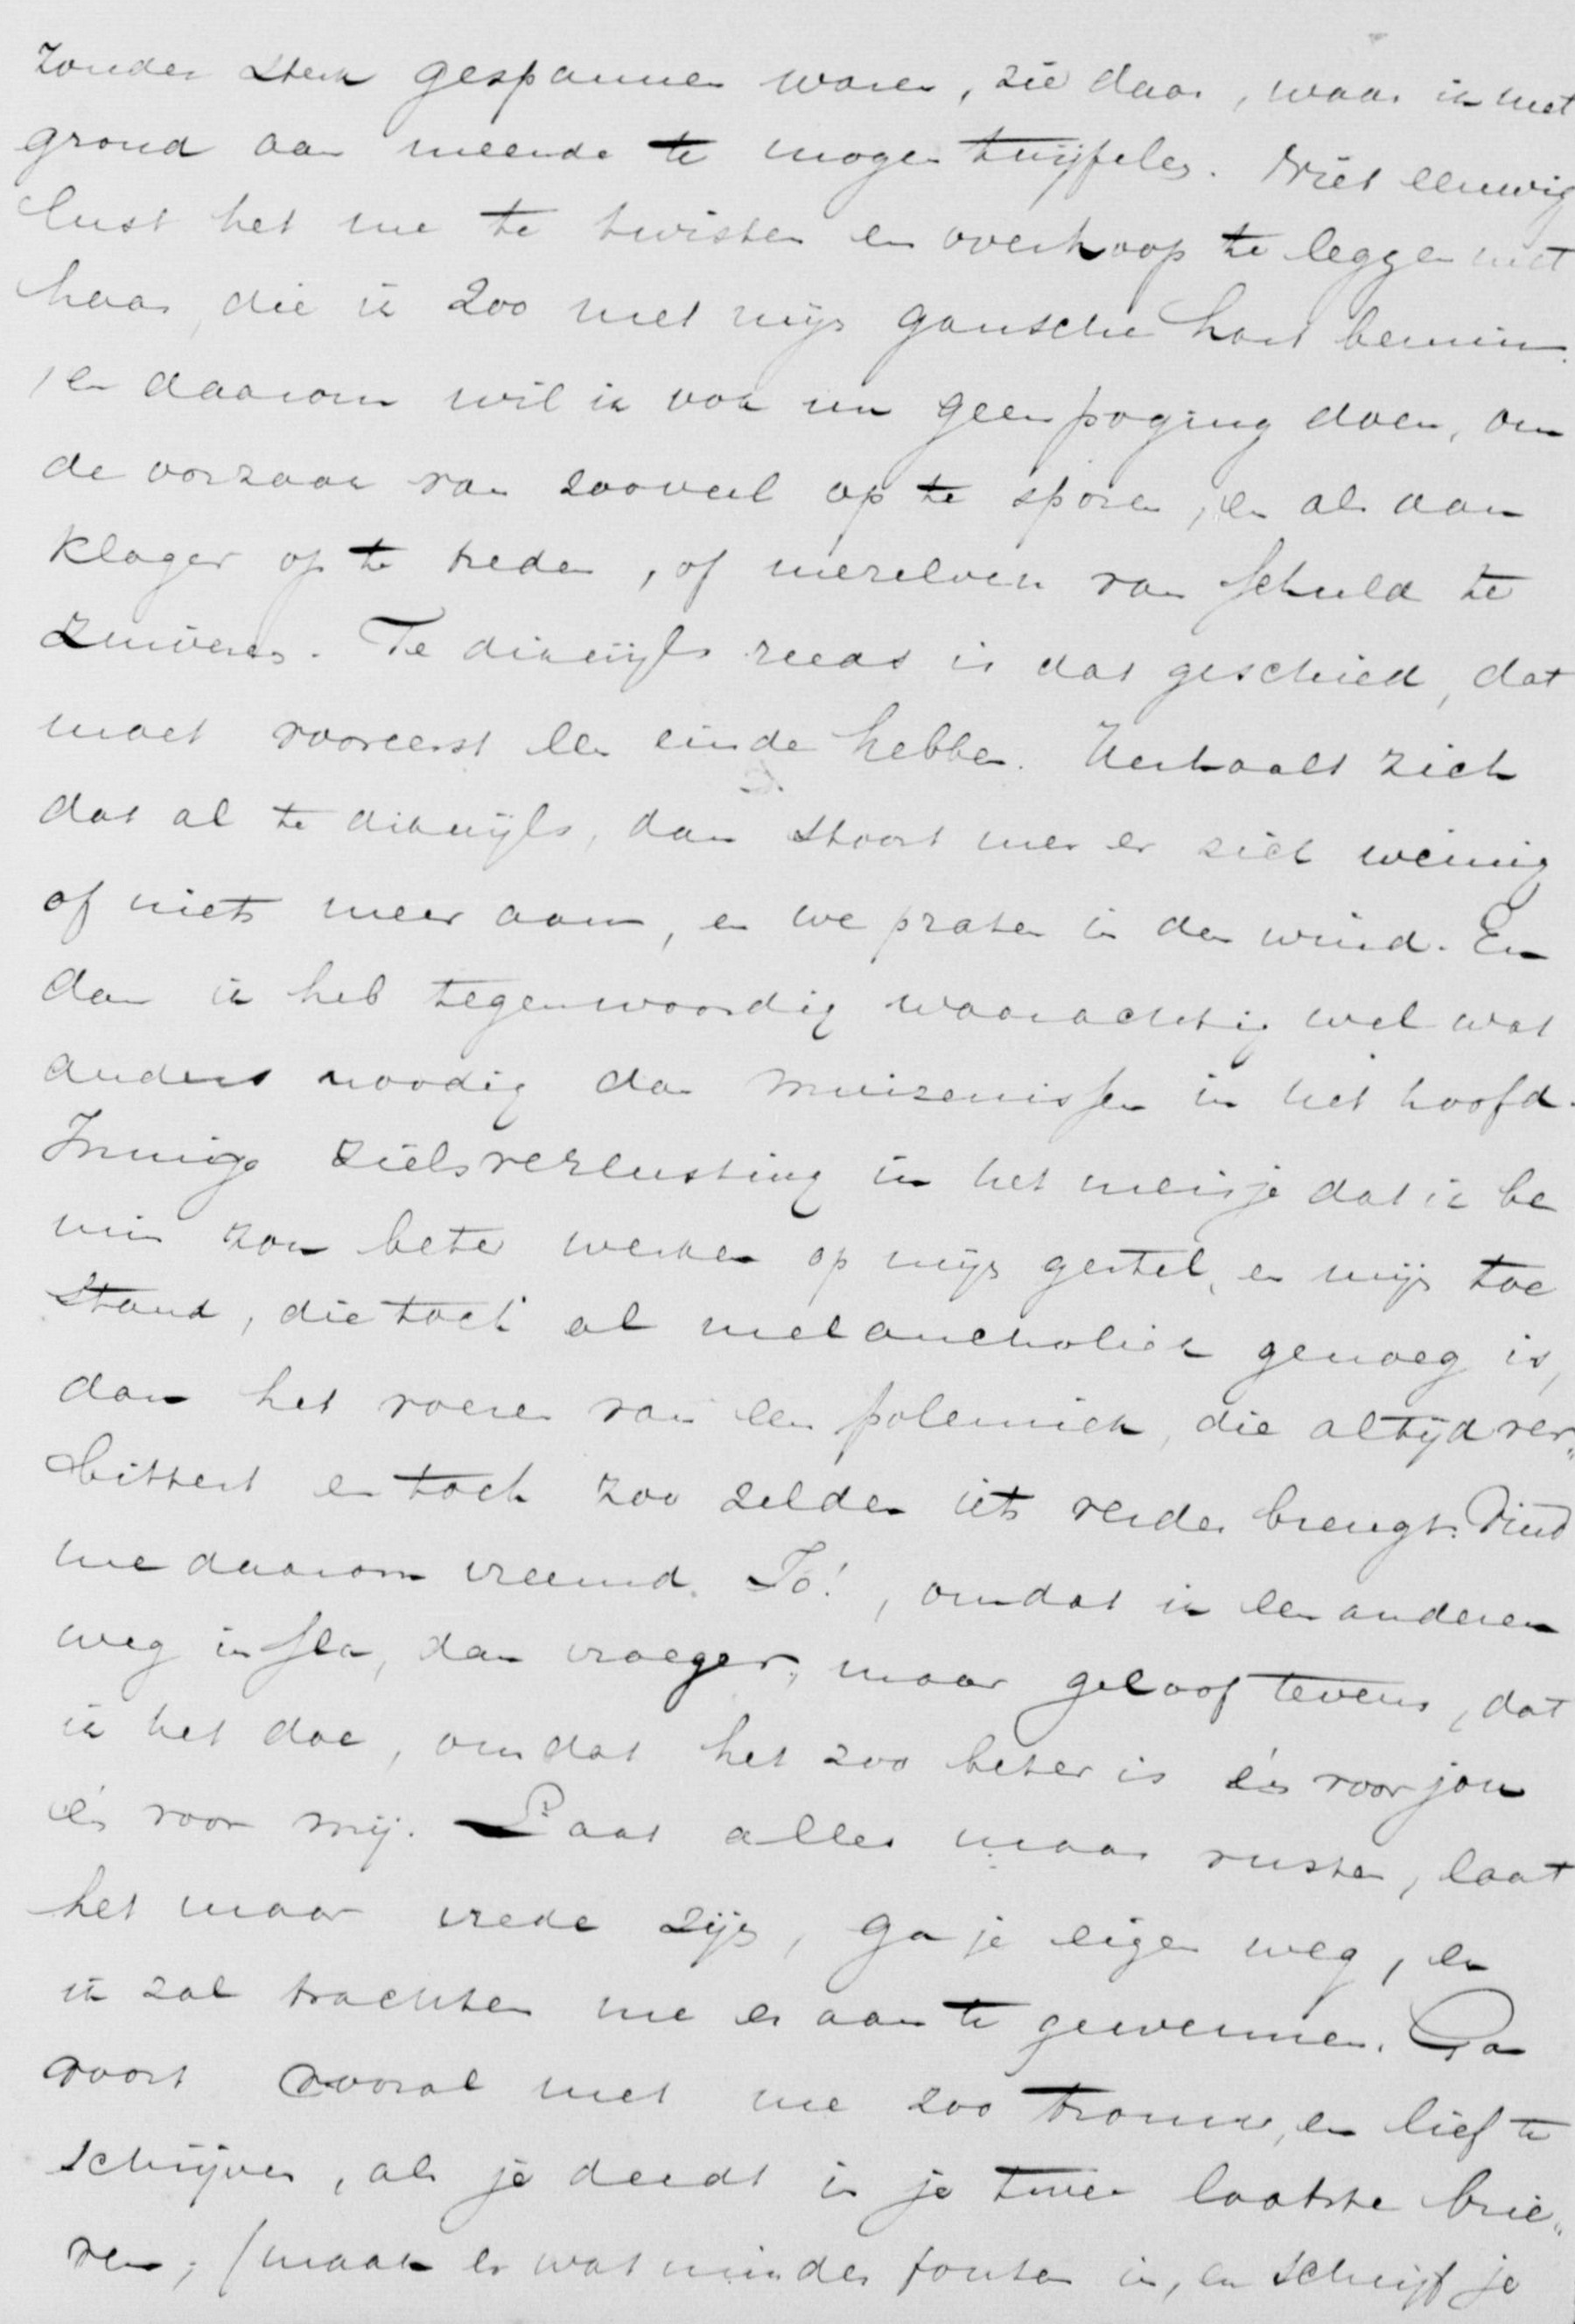 zonder sterk gespannen waren, zie daar, waar ik met
grond aan meende te mogen twijfelen. Niet eeuwig
lust het me te twisten en overhoop te leggen met
haar, die ik zoo met mijn gansche hart bemin.
, en daarom wil ik ook nu geen poging doen, om
de oorzaak van zooveel op te sporen, en als aan
klager op te treden, of mezelven van schuld te
zuiveren. Te dikwijls reeds is dat geschied, dat
moet vooreerst een einde hebben. Herhaalt zich
dat al te dikwijls, dan stoort men er zich weinig
of niets meer aan, en we praten in den wind. En
dan ik heb tegenwoordig waarachtig wel wat
anders noodig dan muizenissen in het hoofd.
Innige zielsverlusting in het meisje dat ik be
min zou beter werken op mijn gestel, en mijn toe
stand, die toch al melancholiek genoeg is,
dan het voeren van een polemiek, die altijd ver„
bittert en toch zoo zelden iets verder brengt. Vind
me daarom vreemd. To!, omdat ik een anderen
weg insla, dan vroeger, maar geloof tevens, dat
ik het doe, omdat het zoo beter is én voor jou
én voor mij. Laat alles maar rusten, laat
het maar vrede zijn, ga je eigen weg, en
ik zal trachten me er aan te gewennen. Ga
voort vooral met me zoo trouw, en lief te
schrijven, als je deedt in je twee laatste brie„
ven; (maak er wat minder fouten in, en schrijf je